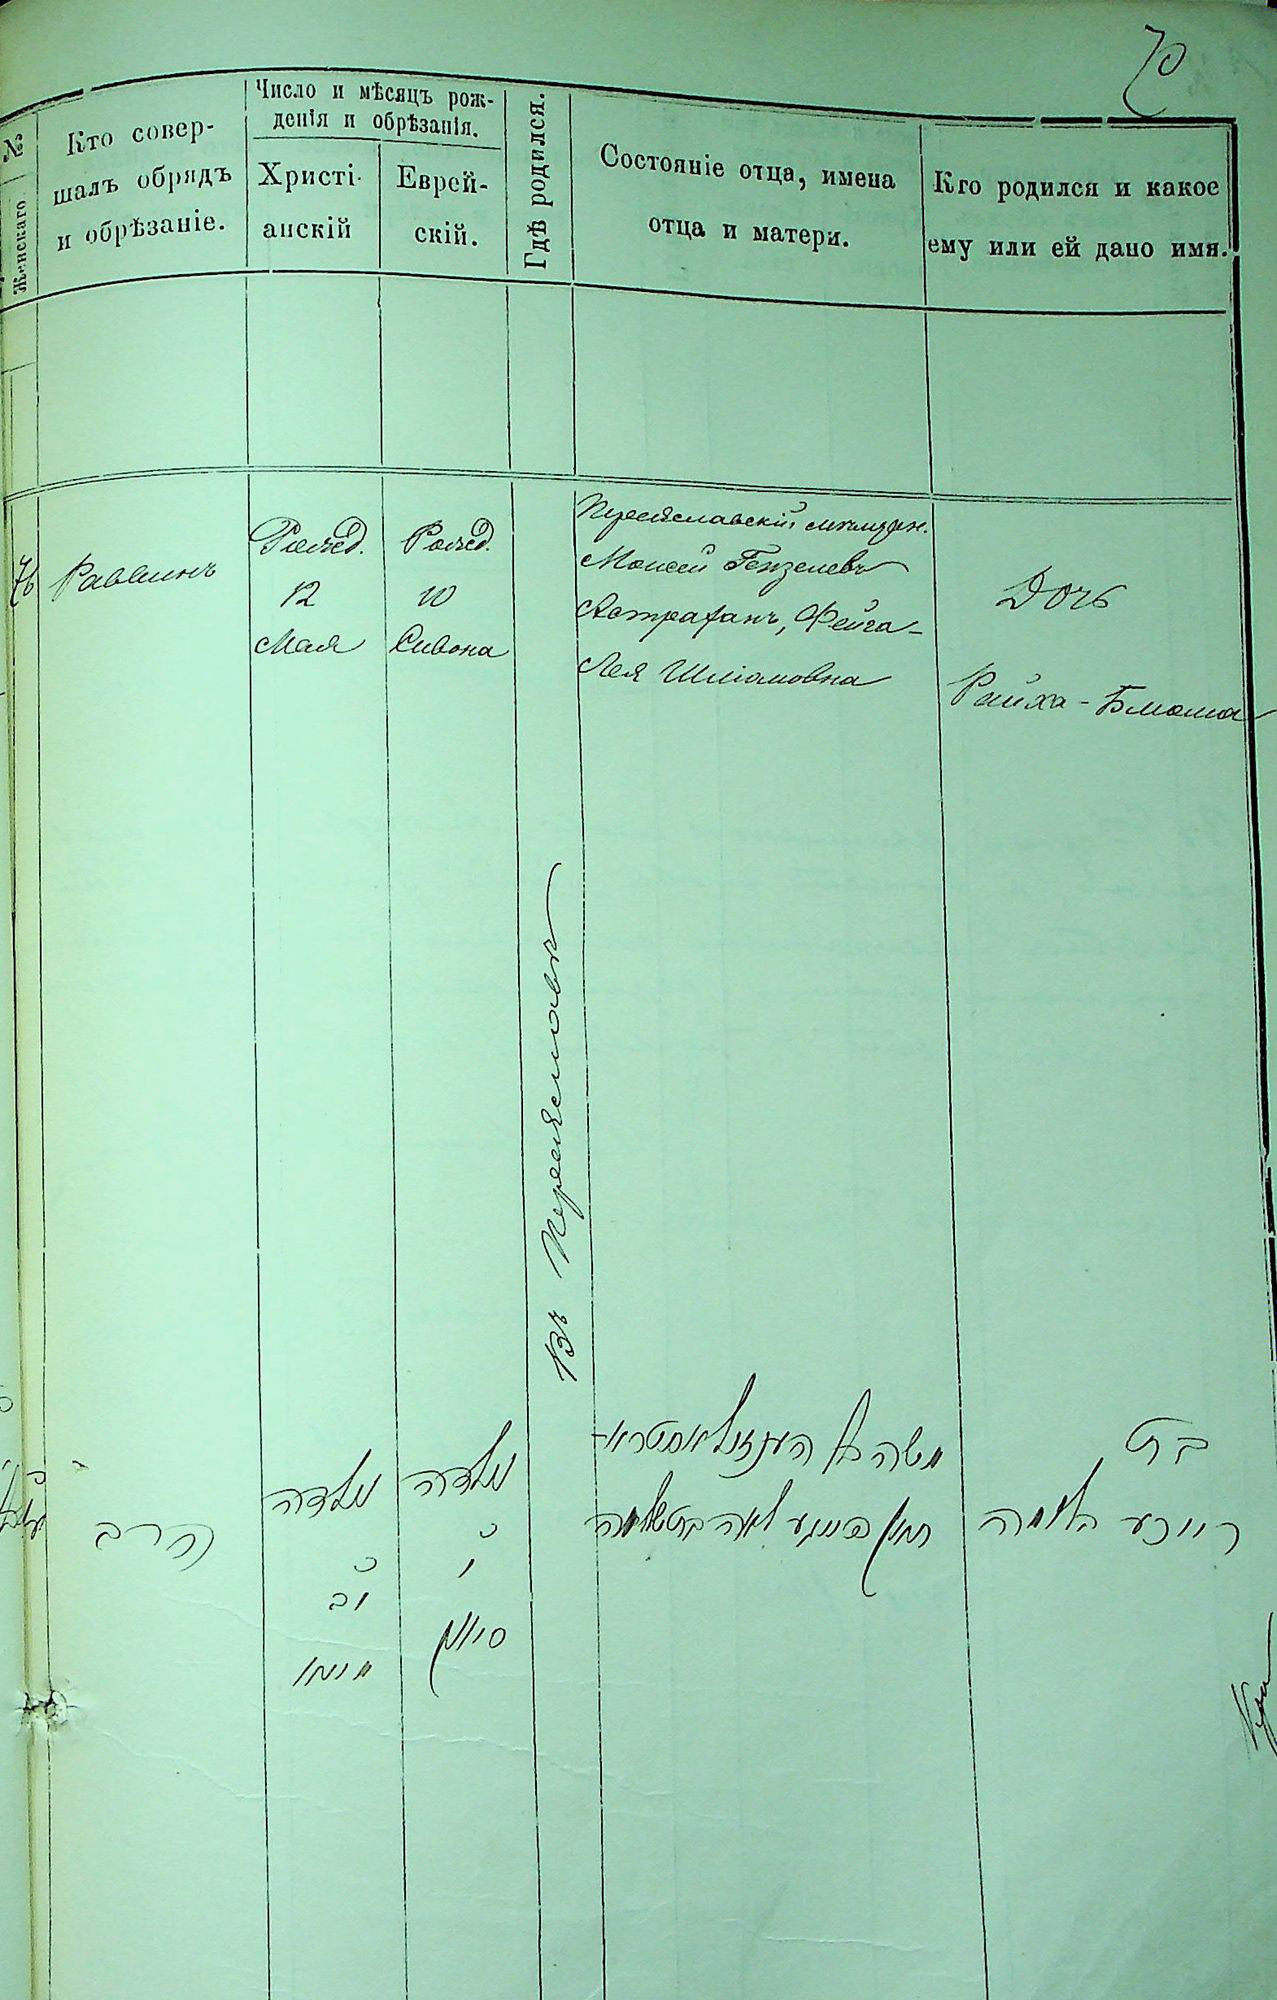 70
№
Женскаго
Кто совер-
шалъ обрядъ
и обрѣзаніе.
Число и мѣсяцъ рож-
денія и обрѣзанія.
Христі-
анскій
Еврей-
скій.
Гдѣ родился.
Состояніе отца, имена
отца и матери.
Кто родился и какое
ему или ей дано имя.
76
Раввинъ
Рожд.
12
Мая
Рожд.
10
Сивона
Въ Переяславѣ
Переяславскій мѣщан.
Моисей Гензелевъ
Астраханъ, Фейга-
Лея Шліомовна
Дочь
Райха-Блюма
הרב
נולדה
יב
מייא
נולדה
י
סיון
משה בן הענזיל אסטרא-
חאן פייגע לאה בת שלמה
בת
רייכע בלומה